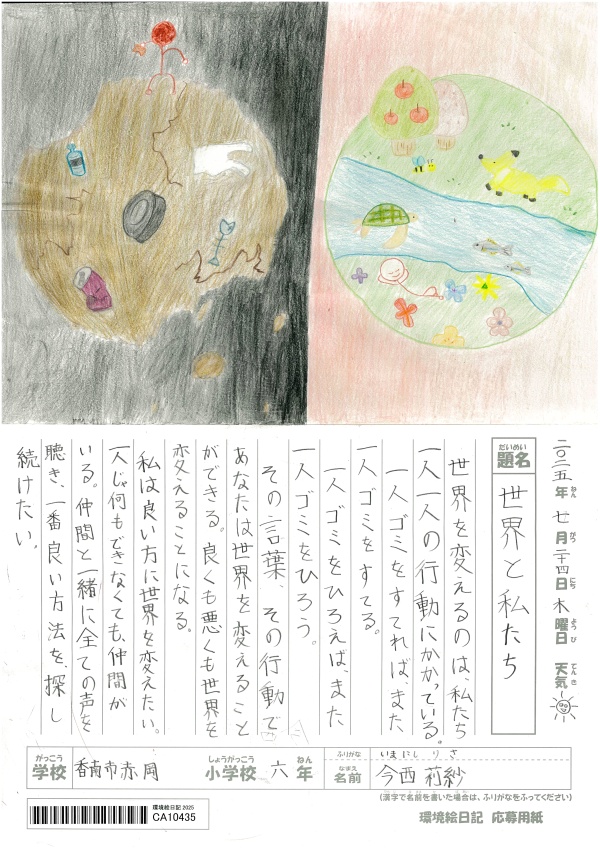 二〇二五年七月二十四日木曜日 天気
ねん がつ にち ようび てんき
だいめい
題名 世界と私たち
世界を変えるのは、私たち
一人一人の行動にかかっている。
一人ゴミをすてれば、また
一人ゴミをすてる。
一人ゴミをひろえば、また
一人ゴミをひろう。
その言葉、その行動で
あなたは世界を変えること
ができる。良くも悪くも世界を
変えることになる。
私は良い方に世界を変えたい。
一人じゃ何もできなくても、仲間が
いる。仲間と一緒に全ての声を
聴き、一番良い方法を、探し
続けたい。
がっこう しょうがっこう ねん
学校 香南市赤岡 小学校 六年
ふりがな いまにし りさ
なまえ
名前 今西 莉紗
(漢字で名前を書いた場合は、ふりがなをふってください)
環境絵日記 応募用紙
環境絵日記 2025
CA10435